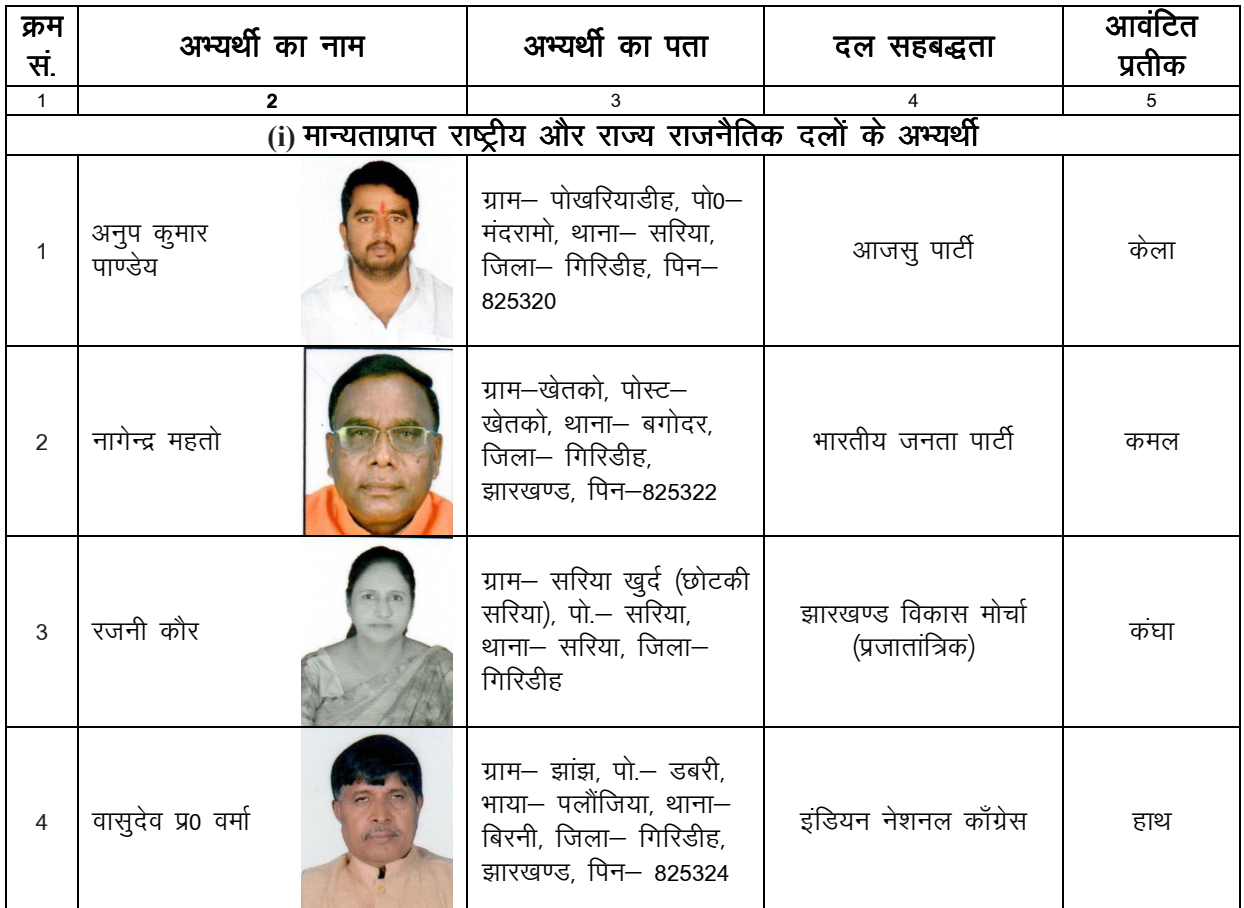 क्रम सं. अभ्यर्थी का नाम अभ्यर्थी का पता दल सहबद्धता आवंटित प्रतीक
1 2 3 4 5
(i) मान्यताप्राप्त राष्ट्रीय और राज्य राजनैतिक दलों के अभ्यर्थी
1
अनुप कुमार
पाण्डेय
ग्राम– पोखरियाडीह, पो0–
मंदरामो, थाना– सरिया,
जिला– गिरिडीह, पिन–
825320
आजसु पार्टी
केला
2
नागेन्द्र महतो
ग्राम–खेतको, पोस्ट–
खेतको, थाना– बगोदर,
जिला– गिरिडीह,
झारखण्ड, पिन–825322
भारतीय जनता पार्टी
कमल
3
रजनी कौर
ग्राम– सरिया खुर्द (छोटकी
सरिया), पो.– सरिया,
थाना– सरिया, जिला–
गिरिडीह
झारखण्ड विकास मोर्चा
(प्रजातांत्रिक)
कंघा
4
वासुदेव प्र0 वर्मा
ग्राम– झांझ, पो.– डबरी,
भाया– पलौंजिया, थाना–
बिरनी, जिला– गिरिडीह,
झारखण्ड, पिन– 825324
इंडियन नेशनल काँग्रेस
हाथ